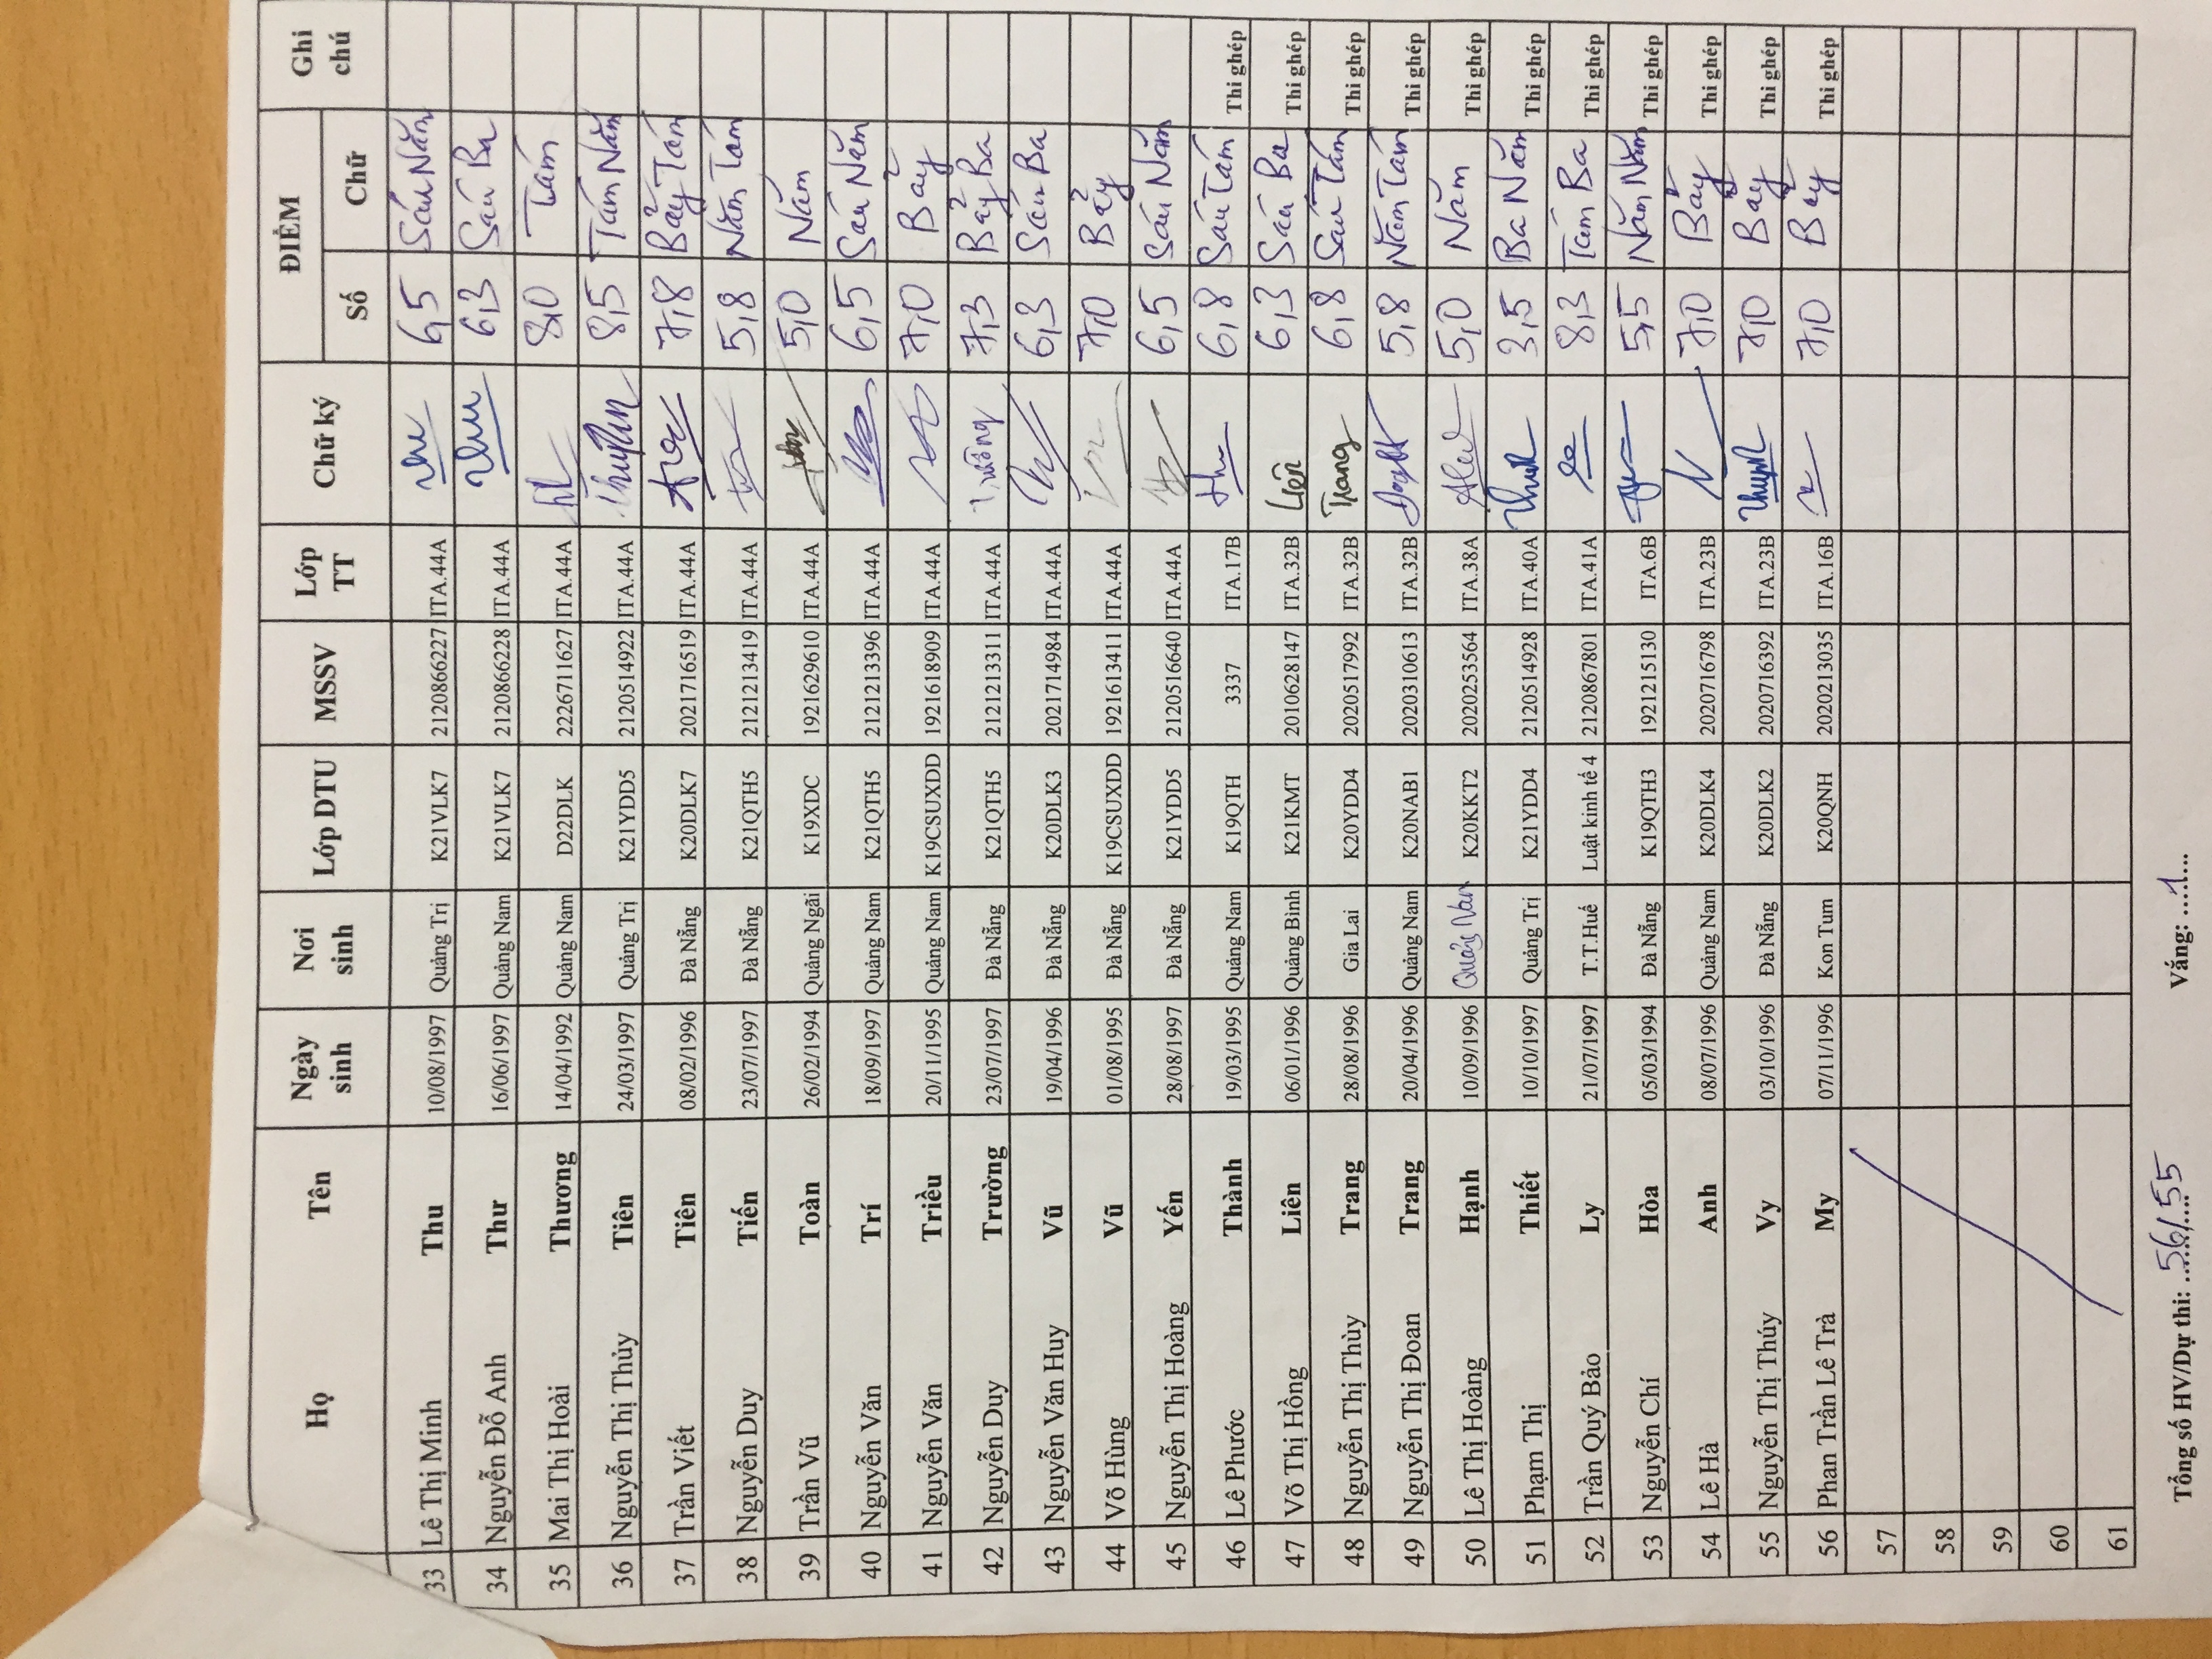 Họ Tên Ngày sinh Nơi sinh Lớp DTU MSSV Lớp TT Chữ ký ĐIỂM Ghi chú
Số Chữ
33 Lê Thị Minh Thu 10/08/1997 Quảng Trị K21VLK7 2120866227 ITA.44A 6,5 Sáu Năm
34 Nguyễn Đỗ Anh Thư 16/06/1997 Quảng Nam K21VLK7 2120866228 ITA.44A 6,3 Sáu Ba
35 Mai Thị Hoài Thương 14/04/1992 Quảng Nam D22DLK 2226711627 ITA.44A 8,0 Tám
36 Nguyễn Thị Thủy Tiên 24/03/1997 Quảng Trị K21YDD5 2120514922 ITA.44A 8,5 Tám Năm
37 Trần Viết Tiên 08/02/1996 Đà Nẵng K20DLK7 2021716519 ITA.44A 7,8 Bảy Tám
38 Nguyễn Duy Tiến 23/07/1997 Đà Nẵng K21QTH5 2121213419 ITA.44A 5,8 Năm Tám
39 Trần Vũ Toàn 26/02/1994 Quảng Ngãi K19XDC 1921629610 ITA.44A 5,0 Năm
40 Nguyễn Văn Trí 18/09/1997 Quảng Nam K21QTH5 2121213396 ITA.44A 6,5 Sáu Năm
41 Nguyễn Văn Triều 20/11/1995 Quảng Nam K19CSUXDD 1921618909 ITA.44A 7,0 Bảy
42 Nguyễn Duy Trường 23/07/1997 Đà Nẵng K21QTH5 2121213311 ITA.44A Trường 7,3 Bảy Ba
43 Nguyễn Văn Huy Vũ 19/04/1996 Đà Nẵng K20DLK3 2021714984 ITA.44A 6,3 Sáu Ba
44 Võ Hùng Vũ 01/08/1995 Đà Nẵng K19CSUXDD 1921613411 ITA.44A 7,0 Bảy
45 Nguyễn Thị Hoàng Yến 28/08/1997 Đà Nẵng K21YDD5 2120516640 ITA.44A 6,5 Sáu Năm
46 Lê Phước Thành 19/03/1995 Quảng Nam K19QTH 3337 ITA.17B 6,8 Sáu Tám Thi ghép
47 Võ Thị Hồng Liên 06/01/1996 Quảng Bình K21KMT 2010628147 ITA.32B Liên 6,3 Sáu Ba Thi ghép
48 Nguyễn Thị Thùy Trang 28/08/1996 Gia Lai K20YDD4 2020517992 ITA.32B Trang 6,8 Sáu Tám Thi ghép
49 Nguyễn Thị Đoan Trang 20/04/1996 Quảng Nam K20NAB1 2020310613 ITA.32B 5,8 Năm Tám Thi ghép
50 Lê Thị Hoàng Hạnh 10/09/1996 Quảng Nam K20KKT2 2020253564 ITA.38A 5,0 Năm Thi ghép
51 Phạm Thị Thiết 10/10/1997 Quảng Trị K21YDD4 2120514928 ITA.40A 3,5 Ba Năm Thi ghép
52 Trần Quý Bảo Ly 21/07/1997 T.T.Huế Luật kinh tế 4 2120867801 ITA.41A 8,3 Tám Ba Thi ghép
53 Nguyễn Chí Hòa 05/03/1994 Đà Nẵng K19QTH3 1921215130 ITA.6B 5,5 Năm Năm Thi ghép
54 Lê Hà Anh 08/07/1996 Quảng Nam K20DLK4 2020716798 ITA.23B 7,0 Bảy Thi ghép
55 Nguyễn Thị Thúy Vy 03/10/1996 Đà Nẵng K20DLK2 2020716392 ITA.23B 7,0 Bảy Thi ghép
56 Phan Trần Lê Trà My 07/11/1996 Kon Tum K20QNH 2020213035 ITA.16B 7,0 Bảy Thi ghép
57
58
59
60
61
Tổng số HV/Dự thi: 56/55 Vắng: 1